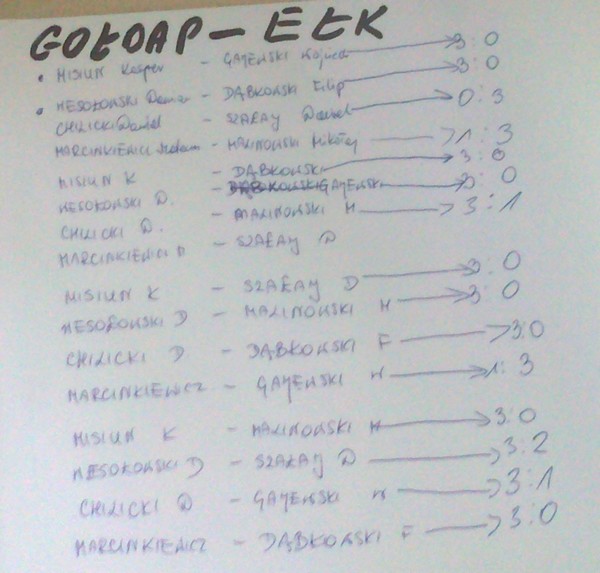 GOŁDAP - EŁK
• MISIUN Kacper - GAJEWSKI Wojciech → 3:0
• WESOŁOWSKI Damian - DĄBKOWSKI Filip → 3:0
CHILICKI Daniel - SZAŁAJ Dawid → 0:3
MARCINKIEWICZ - MALINOWSKI Mikołaj → 1:3
MISIUN K - DĄBKOWSKI → 3:0
WESOŁOWSKI D. - GAJEWSKI → 3:0
CHILICKI D. - MALINOWSKI M → 3:1
MARCINKIEWICZ - SZAŁAJ D
MISIUN K - SZAŁAJ D → 3:0
WESOŁOWSKI D - MALINOWSKI M → 3:0
CHILICKI D - DĄBKOWSKI F → 3:0
MARCINKIEWICZ - GAJEWSKI W → 1:3
MISIUN K - MALINOWSKI M → 3:0
WESOŁOWSKI D - SZAŁAJ D → 3:2
CHILICKI D - GAJEWSKI W → 3:1
MARCINKIEWICZ - DĄBKOWSKI F → 3:0